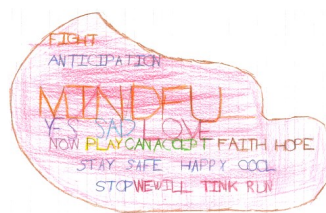 FIGHT
ANTICIPATION
MINDFU
YES SAD LOVE
NOW PLAY CAN ACCEPT FAITH HOPE
STAY SAFE HAPPY COOL
STOP WE WILL TINK RUN